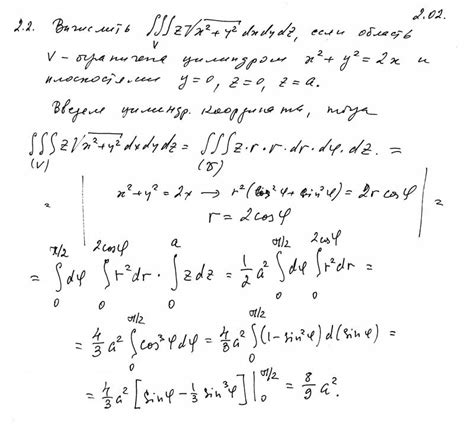 2.02.
2.2. Вычислить ∭_V z√(x²+y²) dxdydz, если область
V - ограничена цилиндром x²+y²=2x и
плоскостями y=0, z=0, z=a.
Введем цилиндр. координаты, тогда
∭_(V) z√(x²+y²) dxdydz = ∭_(V) z·r·r·dr·dφ·dz. =
= | x²+y²=2x → r²(cos²φ+sin²φ)=2r cosφ r=2cosφ | =
= ∫_0^{π/2} dφ ∫_0^{2cosφ} r²dr · ∫_0^a zdz = 1/2 a² ∫_0^{π/2} dφ ∫_0^{2cosφ} r²dr =
= 4/3 a² ∫_0^{π/2} cos³φdφ = 4/3 a² ∫_0^{π/2} (1-sin²φ) d(sinφ) =
= 4/3 a² [sinφ - 1/3 sin³φ] |_0^{π/2} = 8/9 a².